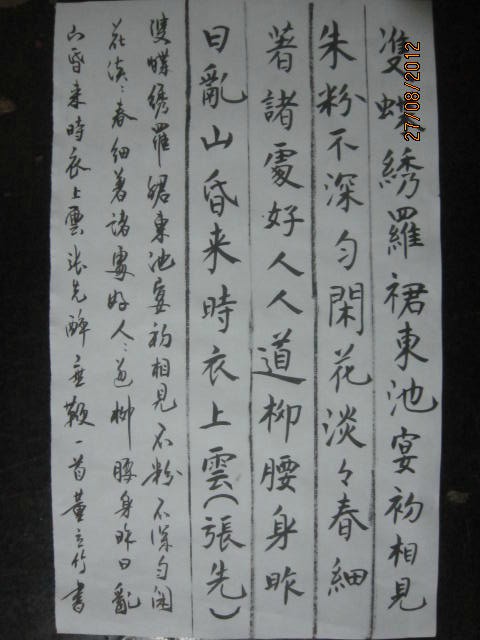 隻蝶綉羅裙東池宴初相見
朱粉不深匀閑花淡々春細
著諸處好人人道柳腰身昨
日亂山昏来時衣上雲(張先)
隻蝶綉羅裙東池宴初相見朱粉不深匀閑
花淡々春細著諸處好人々道柳腰身昨日亂
山昏来時衣上雲張先醉垂鞭一首董立竹書
27/08/2012